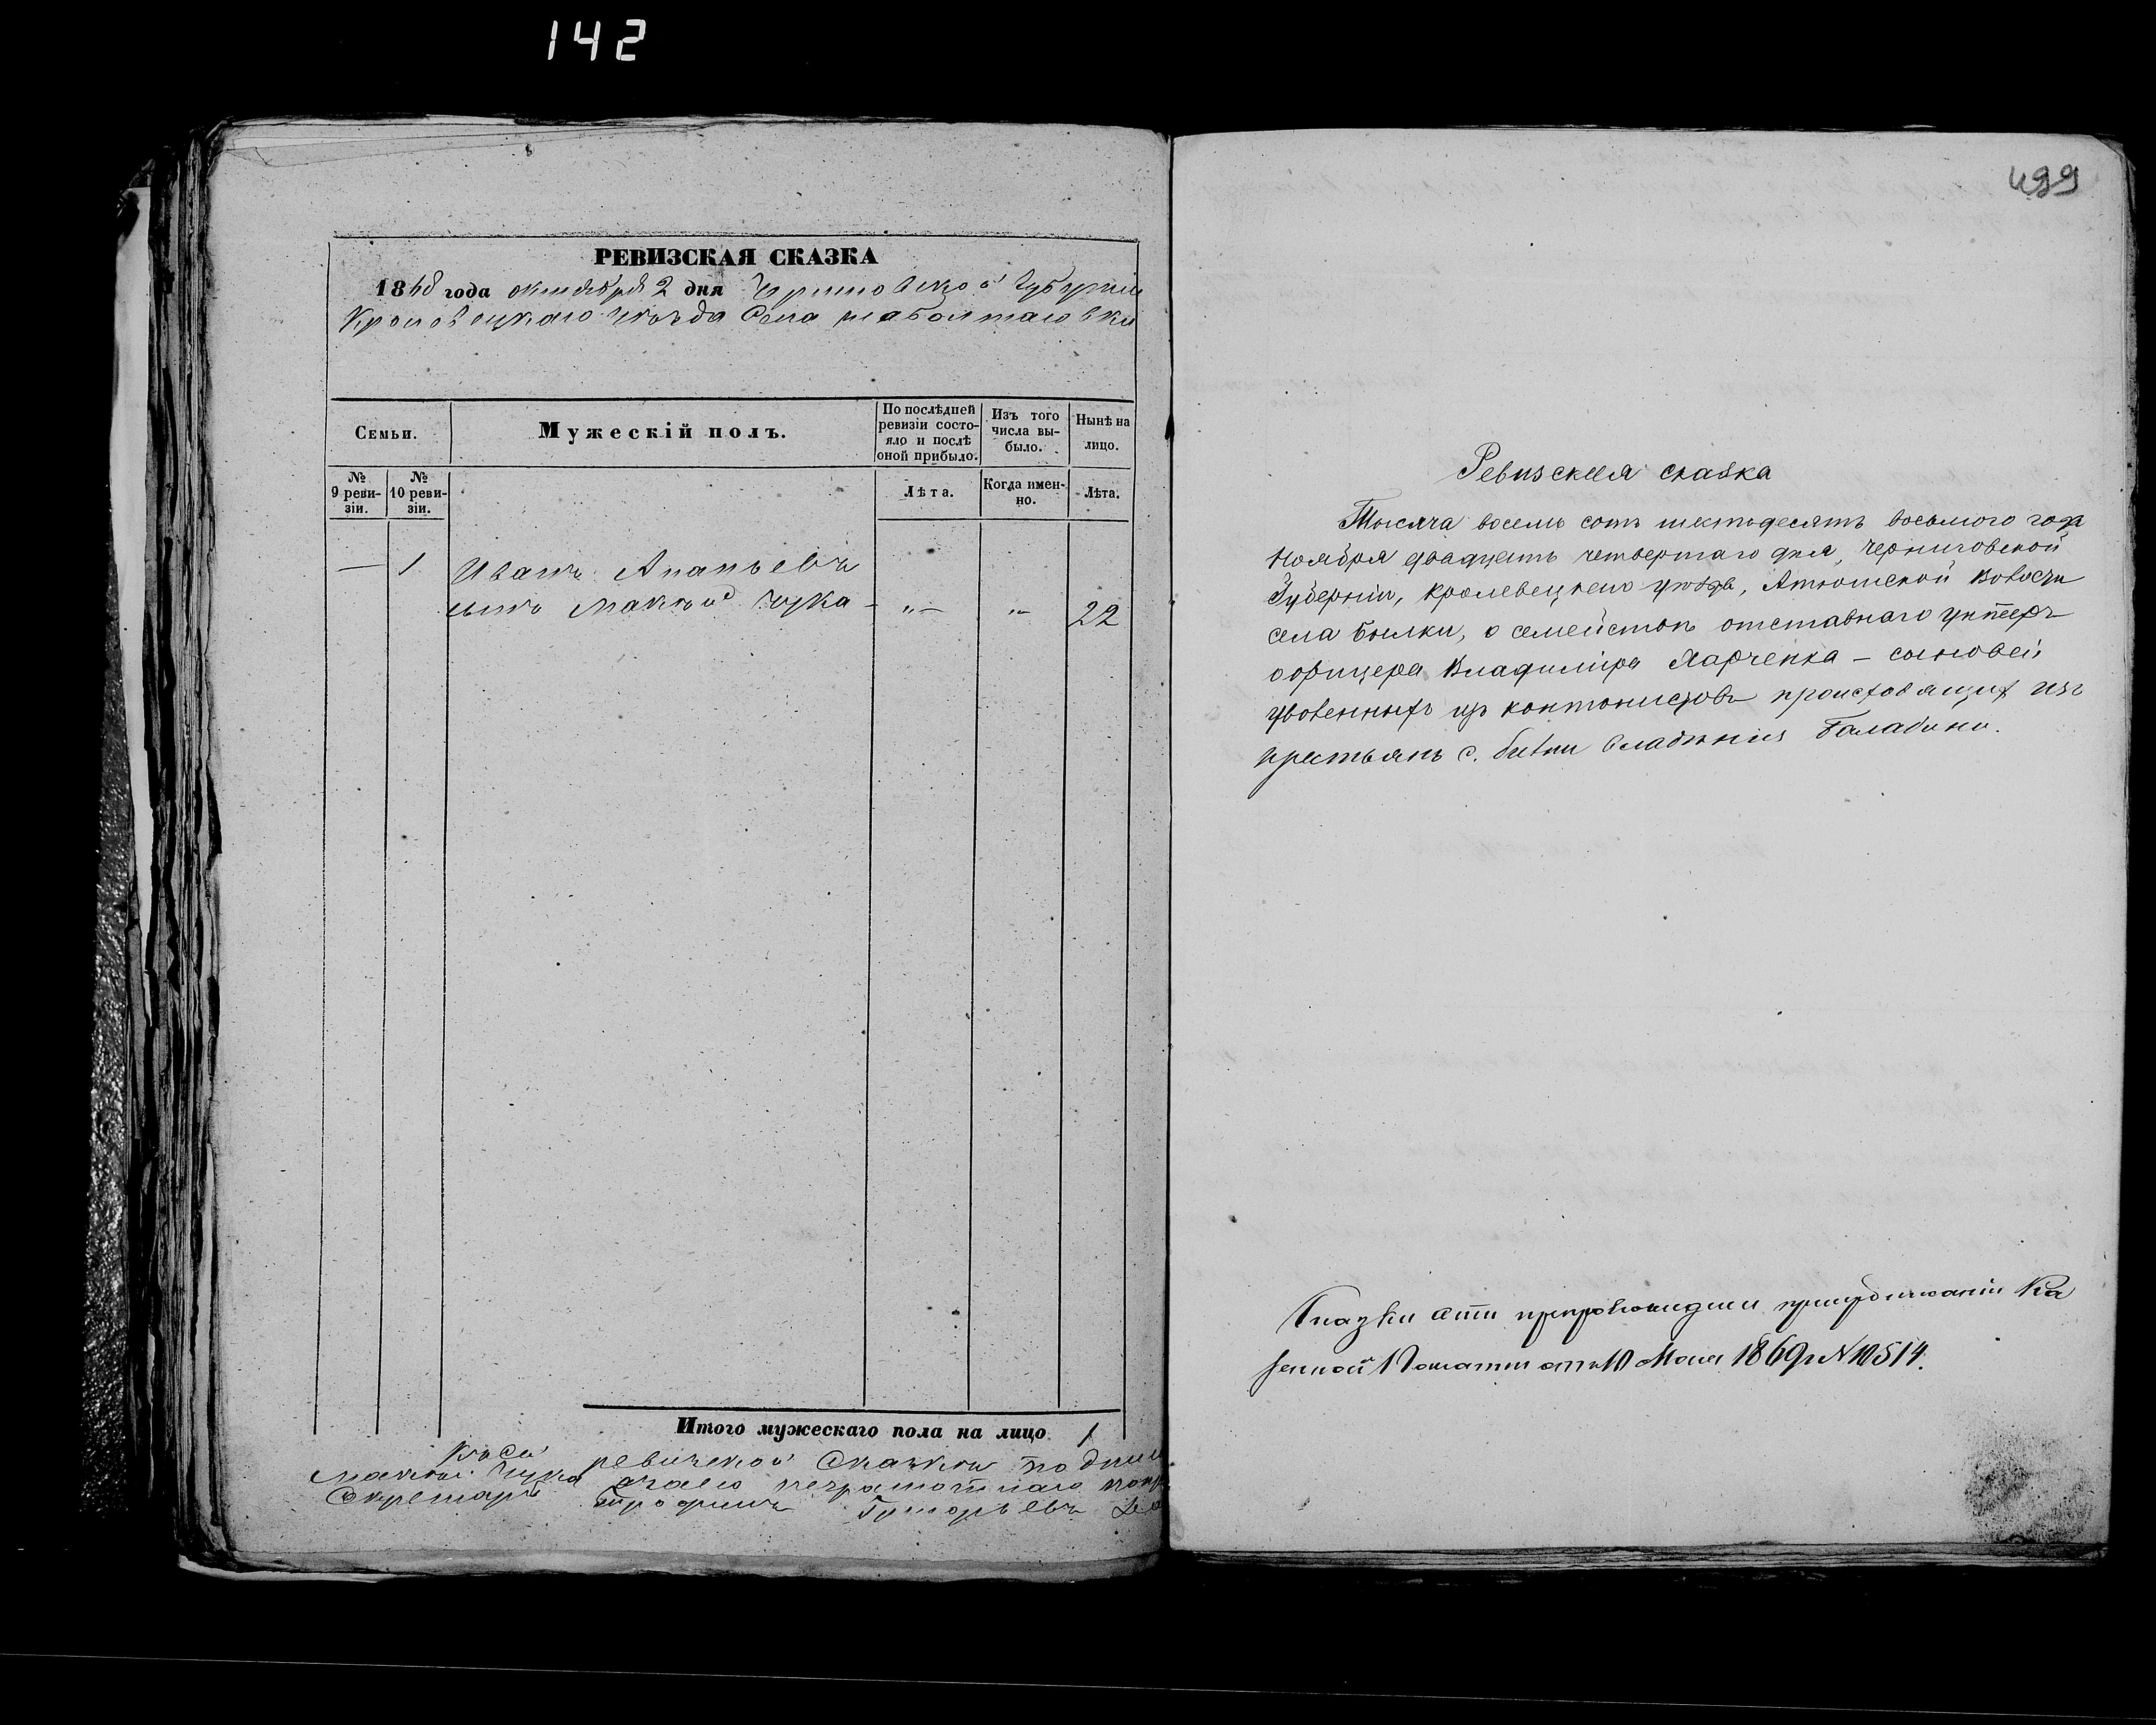 142
РЕВИЗСКАЯ СКАЗКА
1868 года октября 2 дня Черниговской Губернии
Кролевецкаго уезда Села
Семьи.
Мужескій полъ.
По послѣдней ревизіи состояло и послѣ оной прибыло.
Изъ того числа выбыло.
Нынѣ на лицо.
№ 9 ревизіи.
№ 10 ревизіи.
Лѣта.
Когда именно.
Лѣта.
— 1 Иванъ Ананьевъ
сынъ Максим Чуйка - „— „— 22
Итого мужескаго пола на лицо 1
К сей ревизской Сказки
неграмотнаго
Секретарь Трофимъ Григорьевъ
499
Ревизская сказка
Тысяча восемь сотъ шестьдесятъ восьмого года
Ноября двадцать четвертаго дня, Черниговской
Губерніи, Кролевецкаго уѣзда, Атюшской Волости
села Былки, о семействѣ отставнаго унтеръ
офицера Владиміра Харченка — сыновей
уволенныхъ изъ кантонистовъ происходящих изъ
крестьянъ с. Битки владѣнія
Сказки эти препровождены при Ка
зенной Палаты отъ 10 Мая 1869 г № 10514.